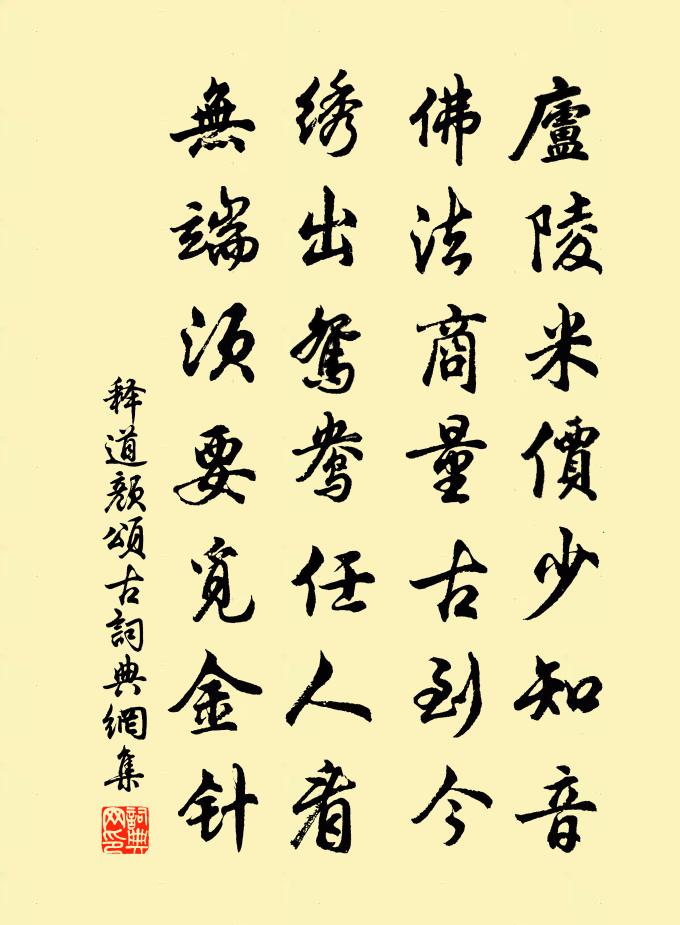 廬陵米價少知音
佛法商量古到今
绣出鴛鴦任人看
無端須要覓金针
释道颜頌古詞典網集
詞典网印